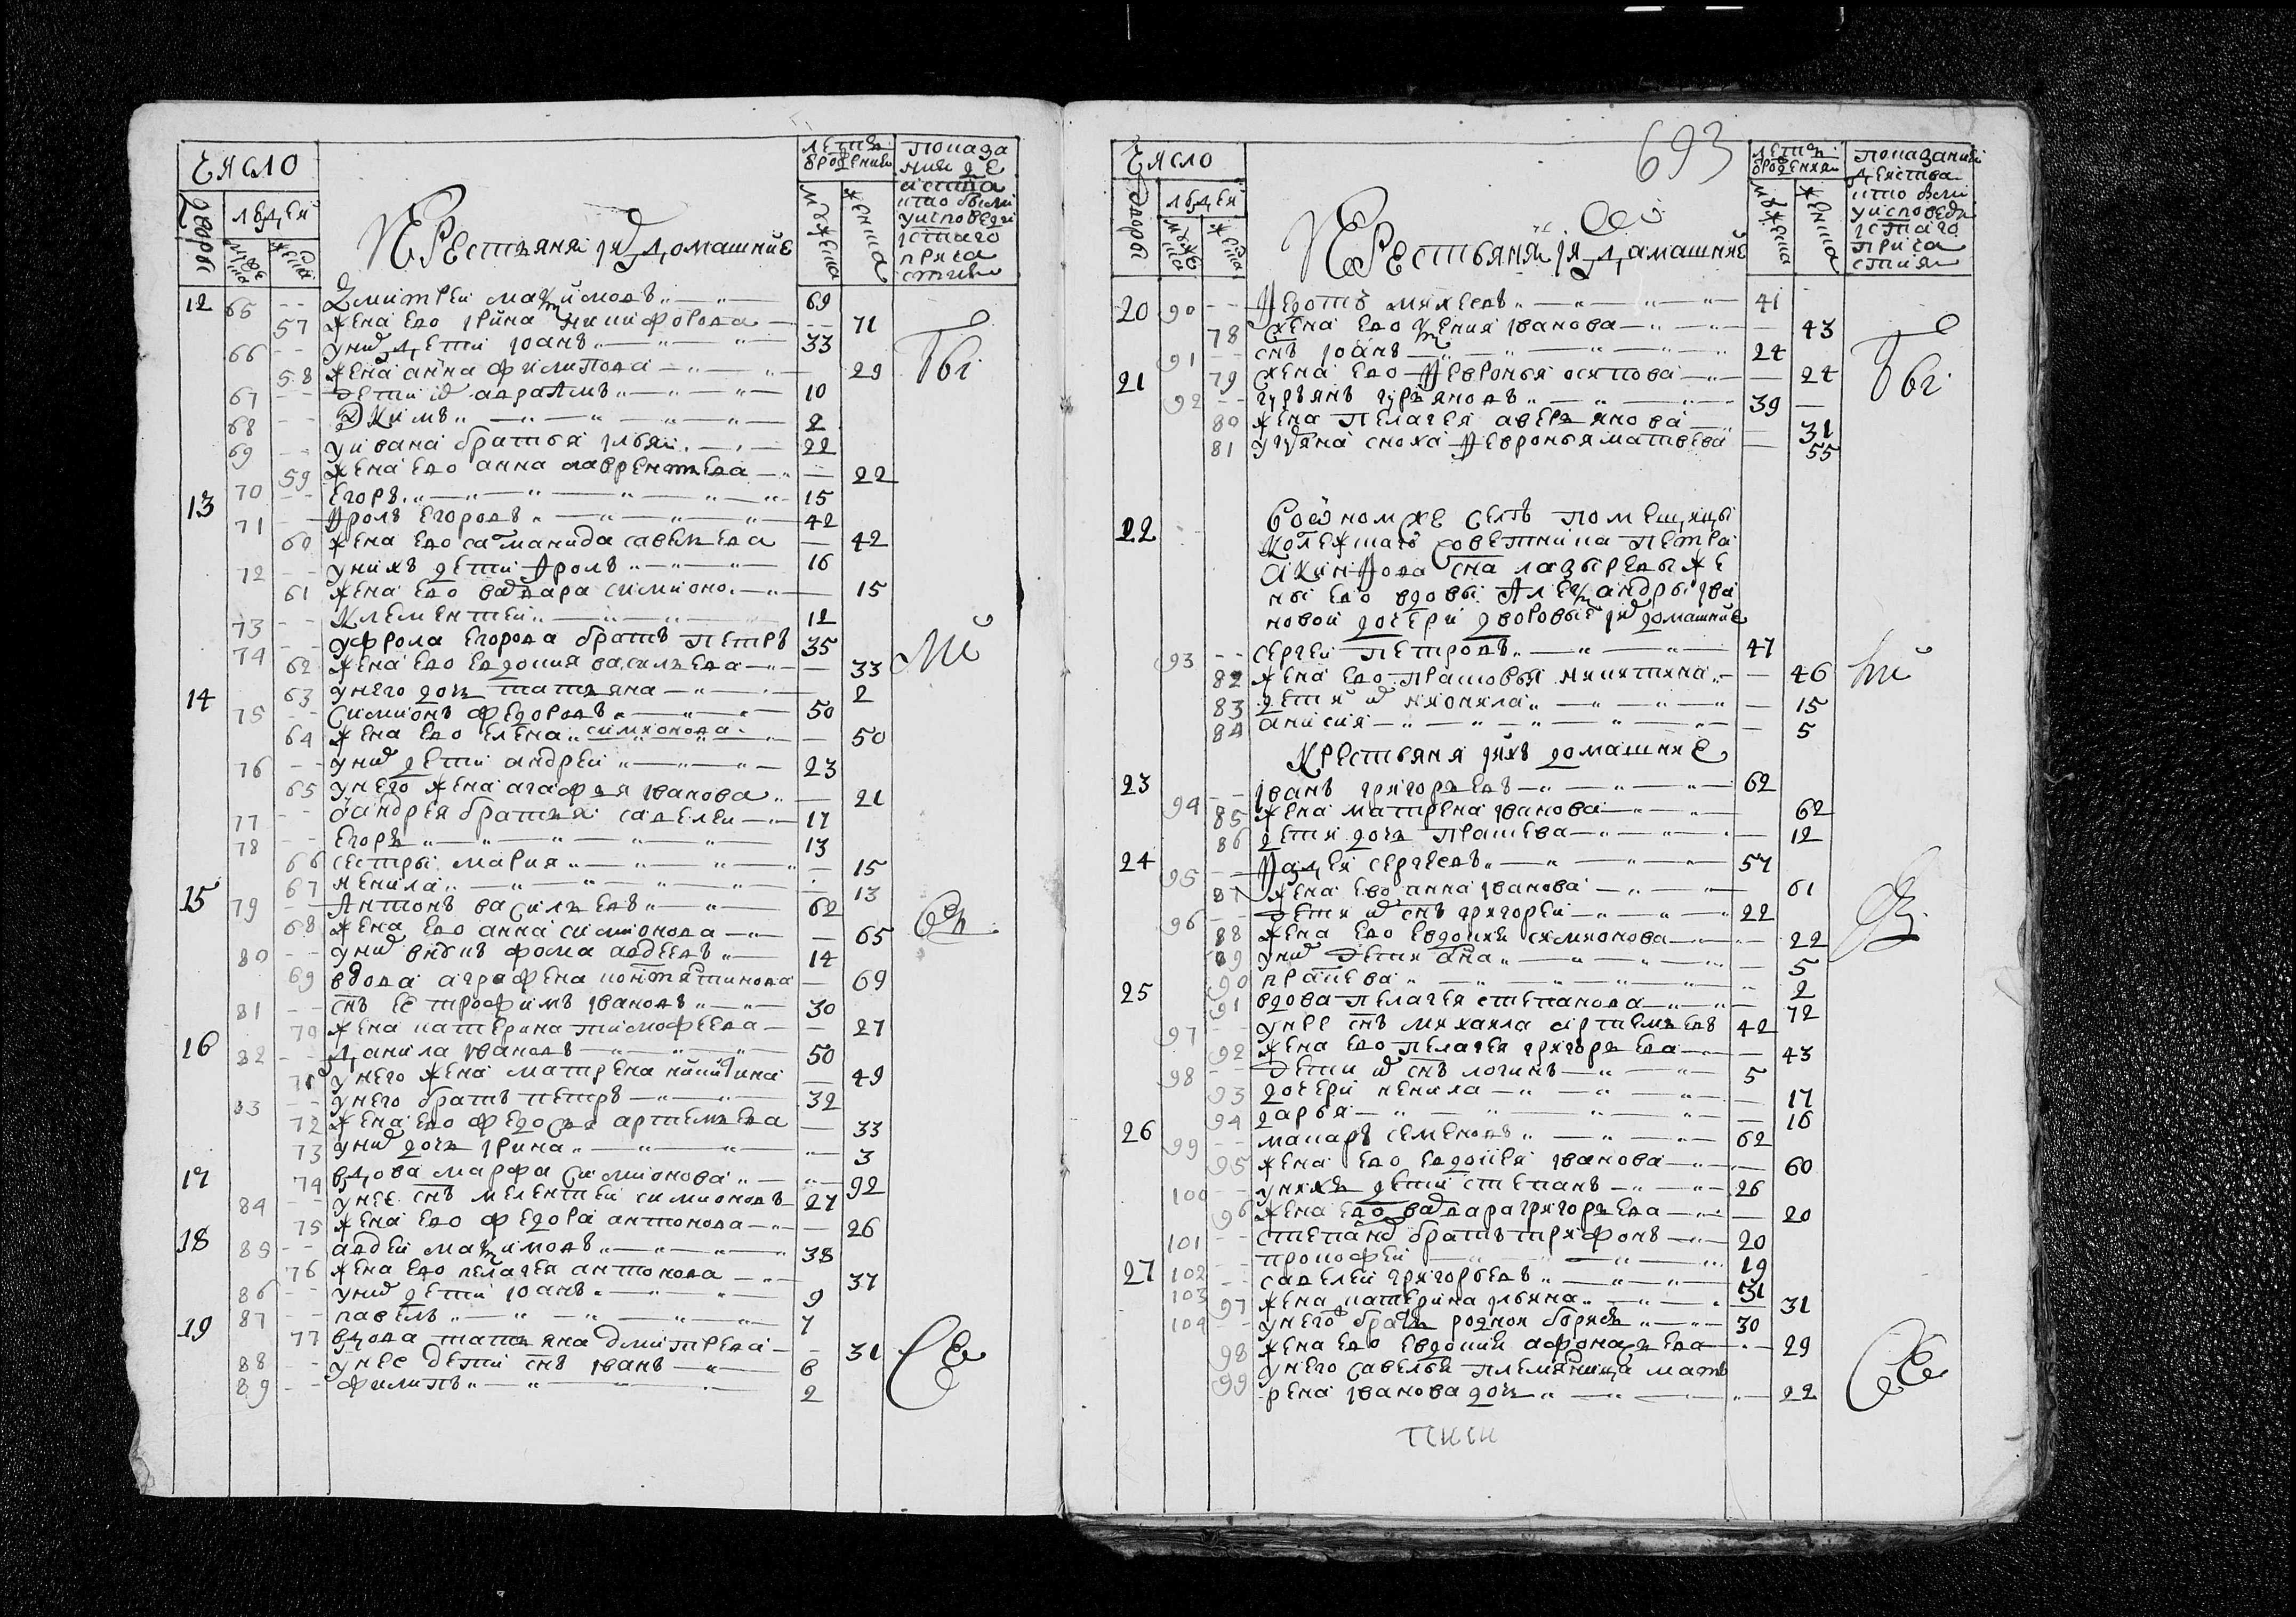 Число
Дворы
людей
мужска
женска
Крестьяня и ихъ домашние
летъ от рождения
мужеска
женска
показание действа кто были у исповеди и святаго причастия
12 65 -- Дмитреи маѯимовъ 69
57 жена ево ирина никифорова -- 71
66 -- у них дети иоанъ 33
58 жена анна филипова -- 29
67 -- дети их авраамъ 10
68 -- екимъ 2
69 -- у ивана братья илья 22
59 жена ево анна лаврентьева -- 22
70 -- Егоръ 15
13 71 -- Фролъ Егоровъ 42
60 жена ево саламанида савельева -- 42
72 -- у нихъ дети Фролъ 16
61 жена ево варвара симионо -- 15
73 -- Клементей 12
74 -- у фрола Егорова братъ Петръ 35
62 жена ево евдокия васильева -- 33
63 у него дочь татьяна -- 2
14 75 -- Симионъ Федоровъ 50
64 жена ево елена симионова -- 50
76 -- у них дети андреи 23
65 у него жена агафья иванова -- 21
77 -- у андрея братья савелеи 17
78 -- Егоръ 13
66 сестры мария -- 15
67 ненила -- 13
15 79 -- Антонъ васильевъ 62
68 жена ево анна симионова -- 65
80 -- у них внукъ фома авдеевъ 14
69 вдова аграфена констянтинова -- 69
81 -- снъ ее трофимъ ивановъ 30
70 жена катерина тимофеева -- 27
16 82 -- Данила ивановъ 50
71 у него жена матрена никитина -- 49
83 -- у него братъ петръ 32
72 жена ево федосья артемьева -- 33
73 у них дочь ирина -- 3
17 74 вдова марфа симионова -- 92
84 -- у нее снъ мелентеи симионовъ 27
75 жена ево федора антонова -- 26
18 85 -- авдеи маѯимовъ 38
76 жена ево пелагея антонова -- 37
86 -- у них дети иоанъ 9
87 -- павелъ 7
19 77 вдова татьяна дмитреева -- 31
88 -- у нее дети снъ иванъ 6
89 -- филипъ 2
693
Число
Дворы
людей
мужска
женска
Крестьяня и ихъ домашние
летъ от рождения
мужеска
женска
показание действа кто были у исповеди и святаго причастия
20 90 -- Федотъ михеевъ 41
78 жена ево ѯения иванова -- 43
91 -- снъ иоанъ 24
79 жена ево Февронья осипова -- 24
21 92 -- гурьянъ гурьяновъ 39
80 жена Пелагея аверьянова 31
81 у гурьяна сноха Февронья матвеева -- 55
22 -- В оном же селе помещицы
Колежшаго советника Петра
акинфова сна лазырева же
ны ево вдовы Алеѯандры ива
новой дочери дворовые и их домашние
93 -- сергеи Петровъ 47
82 жена ево прасковья никитина -- 46
83 дети их неонила -- 15
84 анисия -- 5
Крестьяня и ихъ домашние
23 94 -- иванъ григорьевъ 62
85 жена матрена иванова 62
86 дети дочь прасковья -- 12
24 95 -- Фадеи сергеевъ 57
87 жена ево анна иванова 61
96 -- дети их снъ григореи 22
88 жена ево евдокия симионова -- 22
89 у них дети анна -- 5
90 -- 2
25 91 вдова пелагея степанова -- 72
97 -- у нее снъ михаила артемьевъ 42
92 жена ево пелагея григорьева -- 43
98 -- дети их снъ логинъ 5
93 дочери ненила -- 17
94 дарья -- 16
26 99 -- макаръ семеновъ 62
95 жена ево евдокия иванова -- 60
100 -- у нихъ дети степанъ 26
96 жена ево варвара григорьева -- 20
101 -- степана братъ трифонъ 20
102 -- прокофеи 19
27 103 -- савелеи григорьевъ 31
97 жена катерина ильина -- 31
104 -- у него братъ роднои борисъ 30
98 жена ево евдокия афонасьева -- 29
99 у него савелья племянница мат
рена иванова дочь -- 22